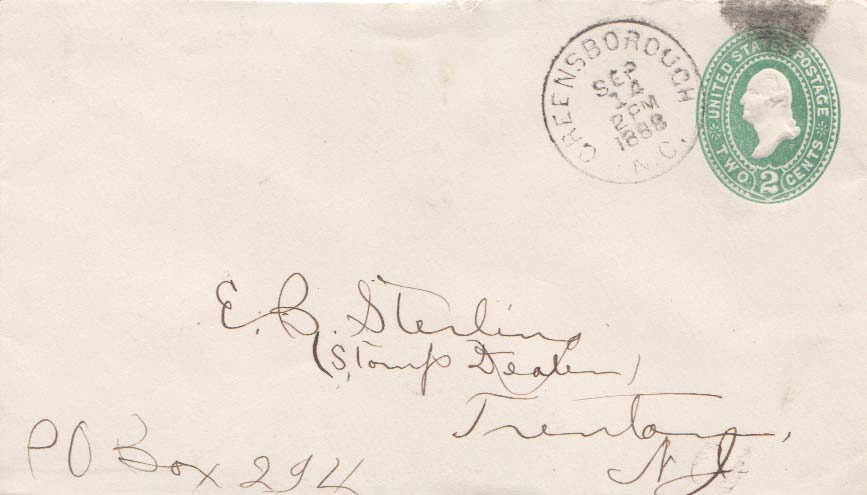 GREENSBOROUGH N.C.
SEP
14
2 PM
1888
UNITED STATES POSTAGE
TWO 2 CENTS
E. B. Sterling
(Stamp Dealer)
Trenton,
N J
PO Box 294